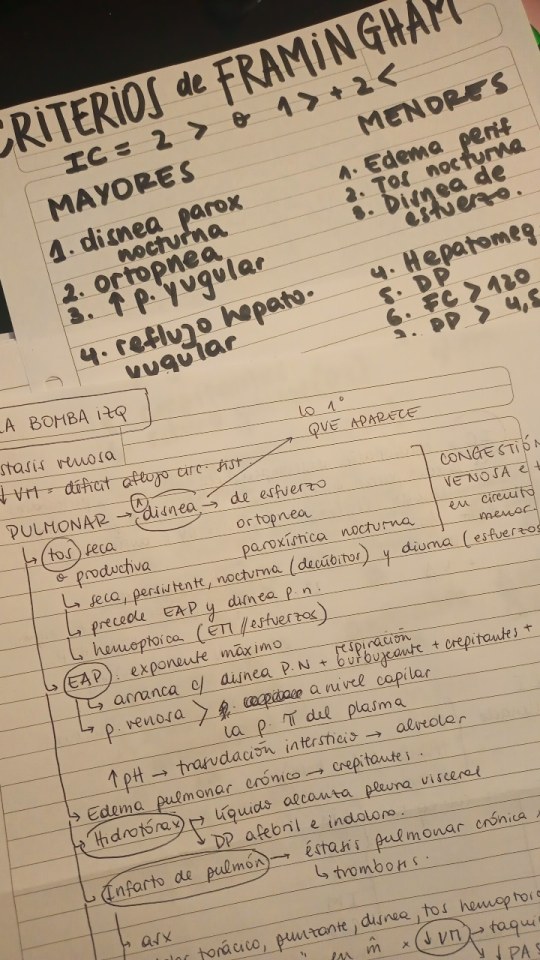 CRITERIOS de FRAMINGHAM
IC = 2 > o 1 > + 2 <
MAYORES
1. disnea parox
nocturna
2. ortopnea
3. ↑ p. yugular
4. reflujo hepato.
yugular
MENORES
1. Edema perif
2. Tos nocturna
3. Disnea de
esfuerzo.
4. Hepatomeg
5. DP
6. FC > 120
7. PP > 4,5
LA BOMBA IZQ
stasis venosa
↓ VM = déficit aflujo circ. sist.
lo 1°
QUE APARECE
PULMONAR → disnea → de esfuerzo
ortopnea
paroxística nocturna
CONGESTIÓN
VENOSA e
en circuito
menor
→ tos seca
o productiva
↳ seca, persistente, nocturna (decúbitos) y diurna (esfuerzos
↳ precede EAP y disnea p.n.
↳ hemoptoica (ETI // esfuerzos)
→ EAP: exponente máximo
↳ arranca c/ disnea P.N + respiración burbujeante + crepitantes +
↳ p. venosa > a nivel capilar
la p. π del plasma
↑ pH → trasudación intersticio → alveolar
→ Edema pulmonar crónico → crepitantes.
→ Hidrotórax → líquido alcanza pleura visceral
↘ DP afebril e indoloro.
→ Infarto de pulmón → éstasis pulmonar crónica,
↳ trombosis.
↳ asx
torácico, punzante, disnea, tos hemoptoic
en m̂ × ↓VM → taqui
↓ PAS